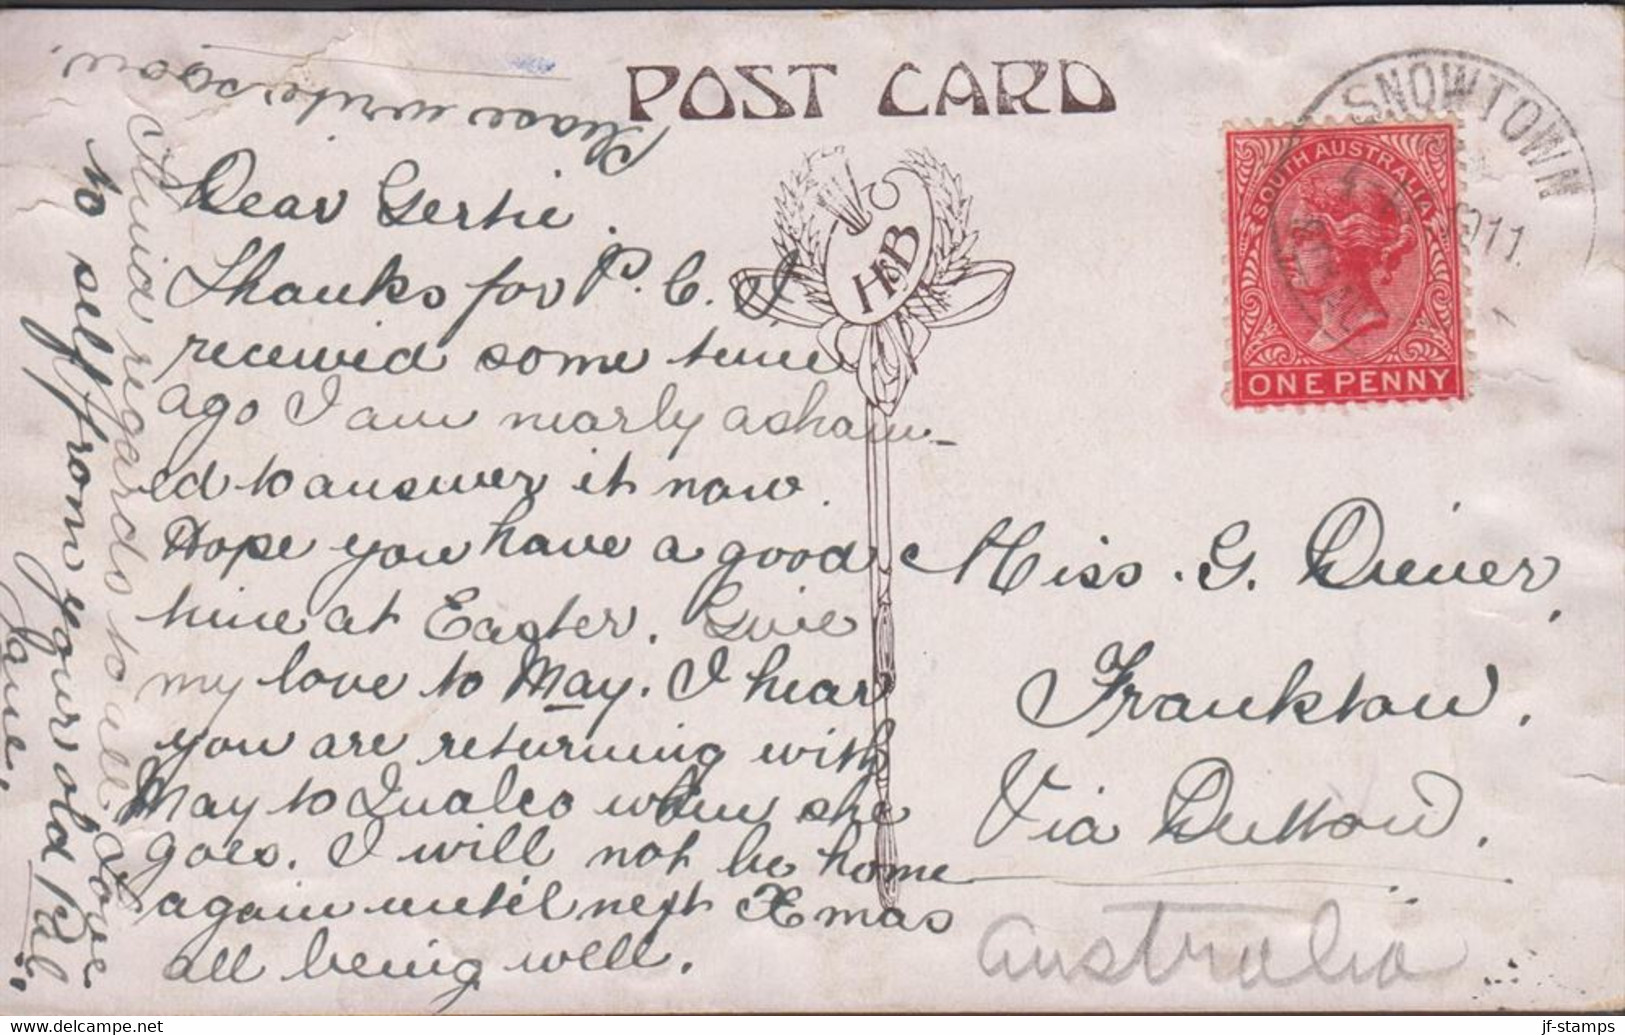 POST CARD
Please write soon.
Dear Gertie.
Thanks for P.C. I
received some time
ago I am nearly asham-
ed to answer it now.
Hope you have a good
time at Easter. Give
my love to May. I hear
you are returning with
May to Qualco when she
goes. I will not be home
again until next Xmas
all being well.
Kind regards to all & love
to self from your old Pal
Jane.
H&B
SNOWTOWN
1911
SOUTH AUSTRALIA
ONE PENNY
Miss. G.
Frankton.
Via Dutton.
Australia
delcampe.net
jf-stamps